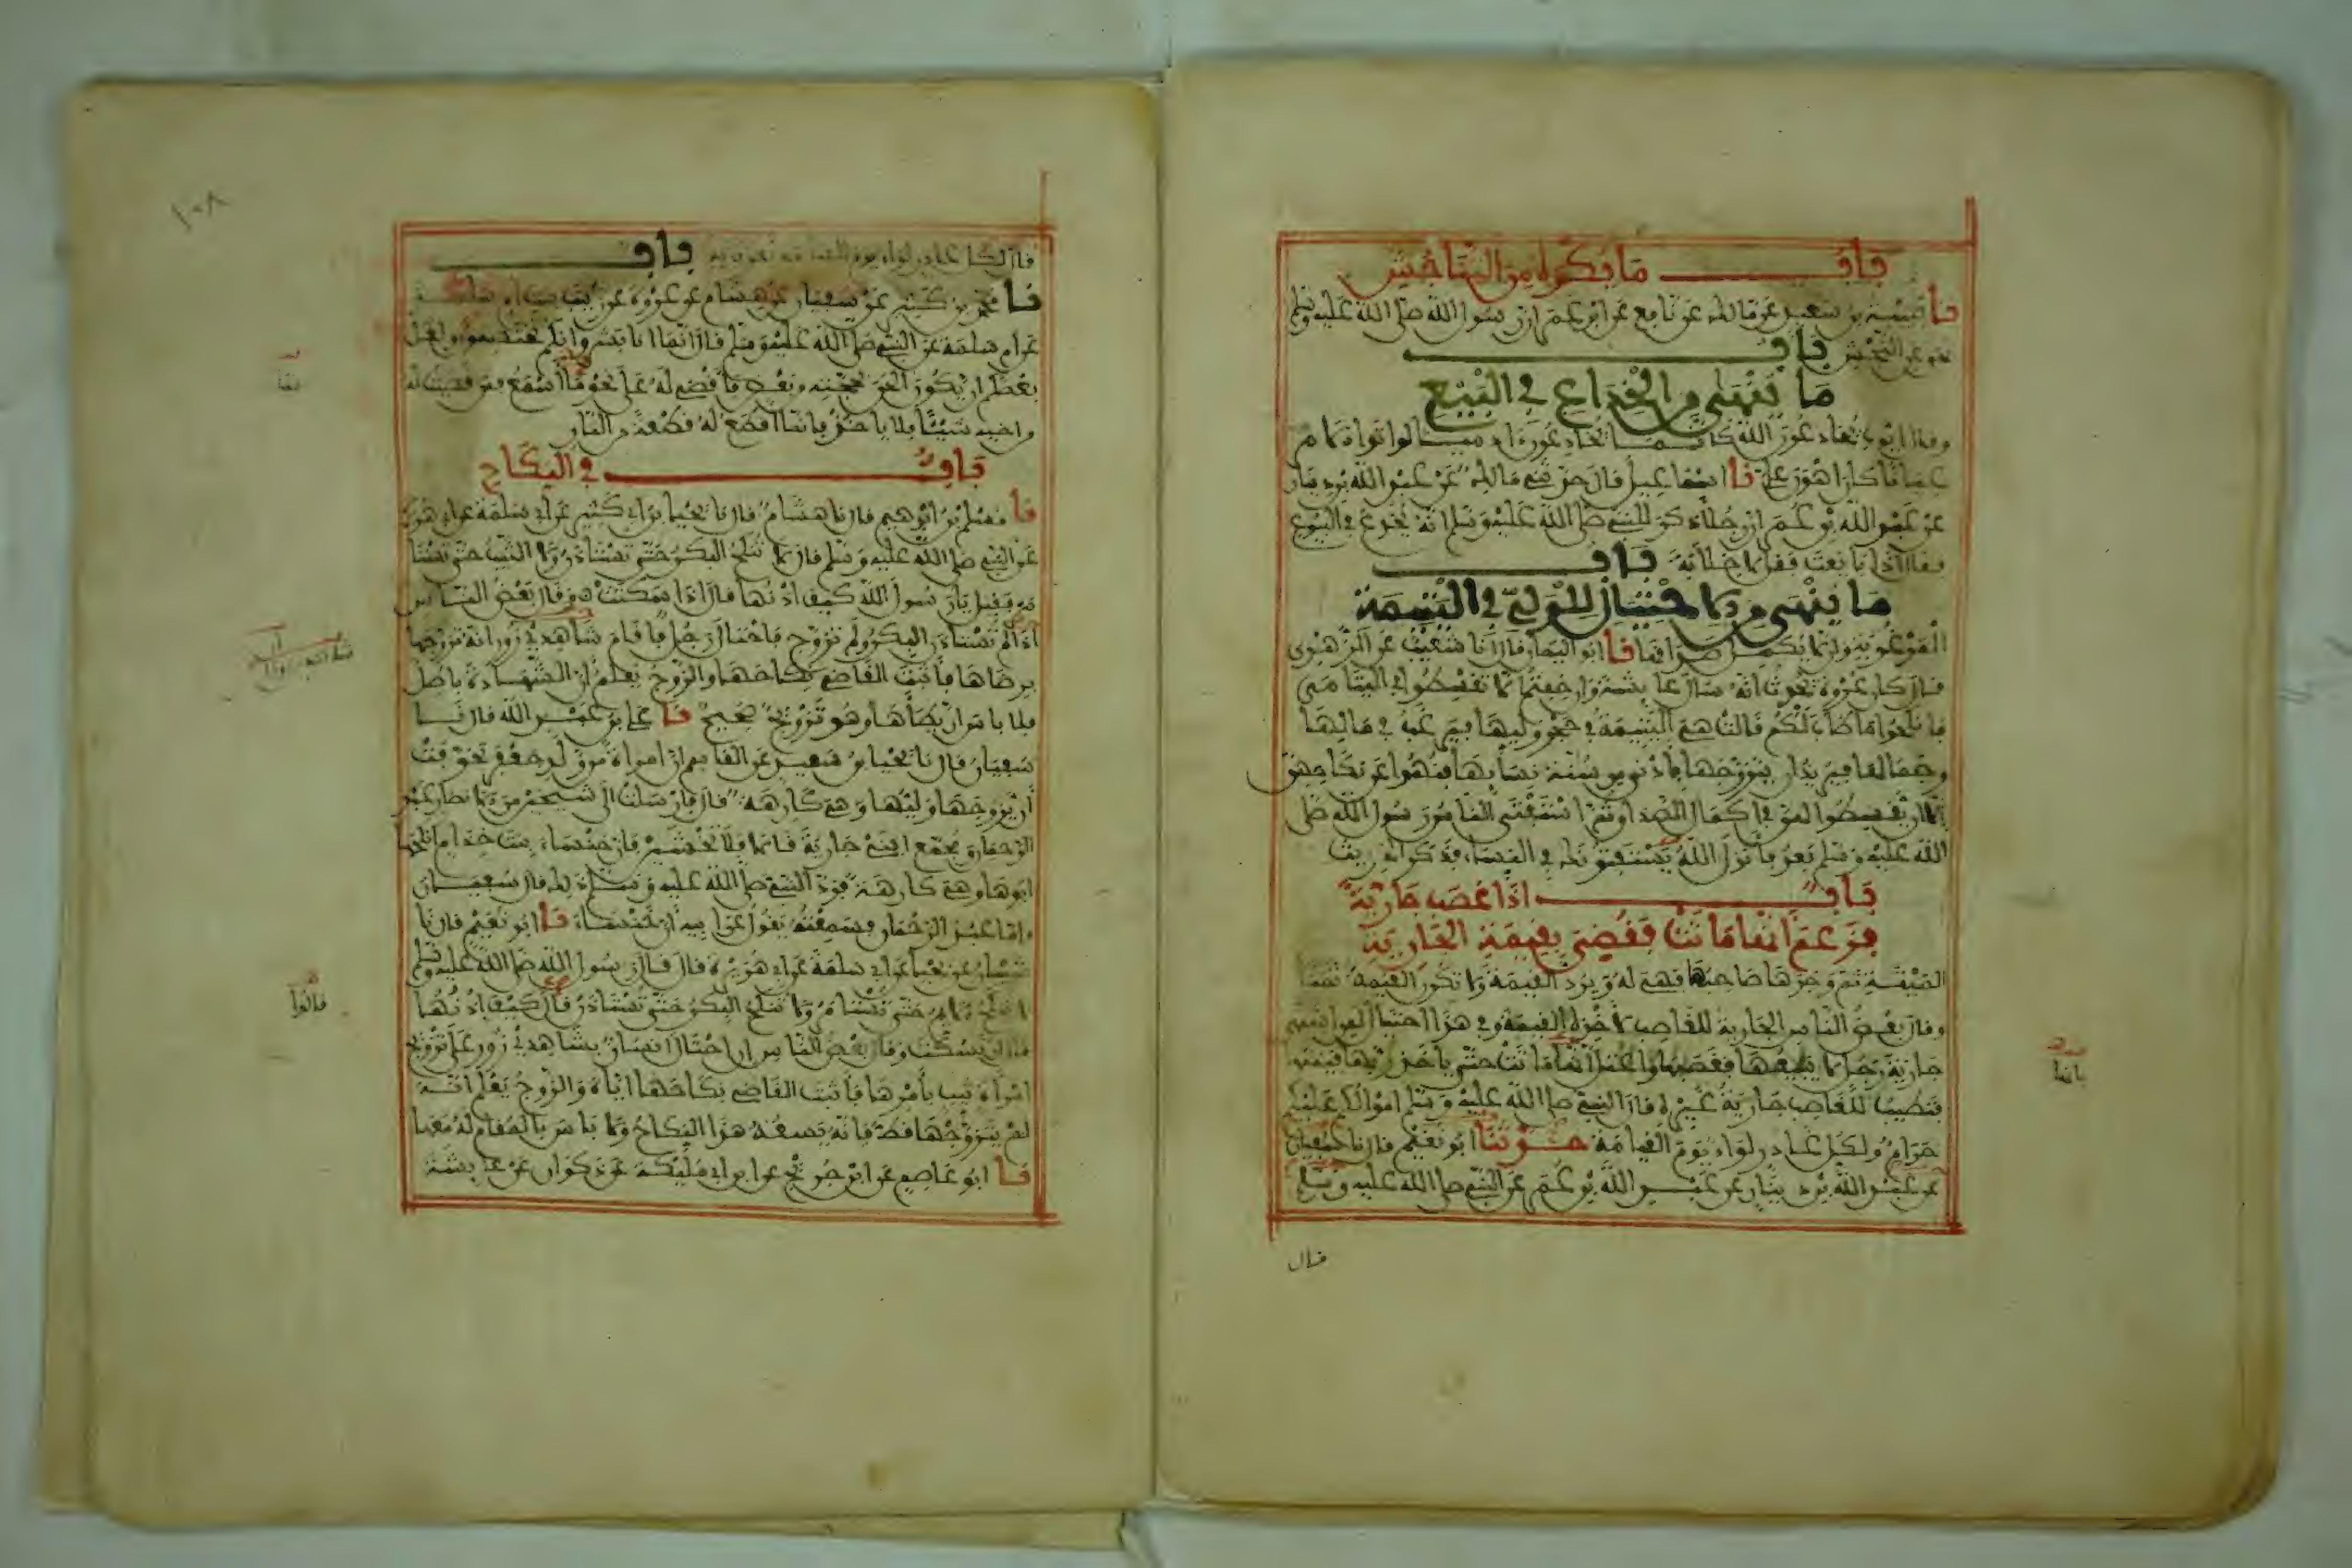 باب ما يكره من التناجش
نا قتيبة بن سعيد عن مالك عن نافع عن ابن عمر ان رسول الله صلى الله عليه وسلم
نهى عن النجش باب
ما ينهى من الخداع في البيع
وقال ايوب يخادعون الله كانما يخادعون آدميا لو اتوا الامر
عيانا كان اهون علي نا اسماعيل قال حدثني مالك عن عبد الله بن دينار
عن عبد الله بن عمر ان رجلا ذكر للنبي صلى الله عليه وسلم انه يخدع في البيوع
فقال اذا بايعت فقل لا خلابة باب
ما ينهى من الاحتيال للولي في اليتيمة
المرغوبة وان لا يكمل صداقها نا ابو اليمان قال انا شعيب عن الزهري
قال كان عروة يحدث انه سال عائشة وان خفتم الا تقسطوا في اليتامى
فانكحوا ما طاب لكم قالت هي اليتيمة في حجر وليها فيرغب في مالها
وجمالها فيريد ان يتزوجها بادنى من سنة نسائها فنهوا عن نكاحهن
الا ان يقسطوا لهن في اكمال الصداق ثم استفتى الناس رسول الله صلى
الله عليه وسلم بعد فانزل الله يستفتونك في النساء فذكر الحديث
باب اذا غصب جارية
فزعم انها ماتت فقضي بقيمة الجارية
الميتة ثم وجدها صاحبها فهي له ويرد القيمة ولا تكون القيمة ثمنا
وقال بعض الناس الجارية للغاصب لاخذه القيمة وفي هذا احتيال لمن اشتهى
جارية رجل لا يبيعها فغصبها واعتل بانها ماتت حتى ياخذ ربها قيمتها
فتطيب للغاصب جارية غيره قال النبي صلى الله عليه وسلم اموالكم عليكم
حرام ولكل غادر لواء يوم القيامة حدثنا ابو نعيم قال نا سفيان
عن عبد الله بن دينار عن عبد الله بن عمر عن النبي صلى الله عليه وسلم
قال
بانها
١٠٨
قال لكل غادر لواء يوم القيامة يعرف به باب
نا محمد بن كثير عن سفيان عن هشام عن عروة عن زينب بنت ام سلمة
عن ام سلمة عن النبي صلى الله عليه وسلم قال انما انا بشر وانكم تختصمون ولعل
بعضكم ان يكون الحق بحجته من بعض فاقضي له على نحو ما اسمع فمن قضيت له
من اخيه شيئا فلا ياخذ فانما اقطع له قطعة من النار
باب في النكاح
نا مسلم بن ابراهيم قال نا هشام قال نا يحيى بن ابي كثير عن ابي سلمة عن ابي هريرة
عن النبي صلى الله عليه وسلم قال لا تنكح البكر حتى تستاذن ولا الثيب حتى تستا
مر فقيل يا رسول الله كيف اذنها قال اذا سكتت وقال بعض الناس
اذا لم تستاذن البكر ولم تزوج فاحتال رجل فاقام شاهدي زور انه تزوجها
برضاها فاثبت القاضي نكاحها والزوج يعلم ان الشهادة باطل
فلا باس ان يطاها وهو تزويج صحيح نا علي بن عبد الله قال نا
سفيان قال نا يحيى بن سعيد عن القاسم ان امراة من ولد جعفر تخوفت
ان يزوجها وليها وهي كارهة فارسلت الى شيخين من الانصار عبد
الرحمان ومجمع ابني جارية قالا فلا تخشين فان خنساء بنت خدام انكحها
ابوها وهي كارهة فرد النبي صلى الله عليه وسلم ذلك قال سفيان
واما عبد الرحمان فسمعته يقول عن ابيه ان خنساء نا ابو نعيم قال نا
شيبان عن يحيى عن ابي سلمة عن ابي هريرة قال قال رسول الله صلى الله عليه وسلم
لا تنكح الايم حتى تستامر ولا تنكح البكر حتى تستاذن قال كيف اذنها
قال ان تسكت وقال بعض الناس ان احتال انسان بشاهدي زور على تزويج
امراة ثيب بامرها فاثبت القاضي نكاحها اياه والزوج يعلم انه
لم يتزوجها قط فانه يسعه هذا النكاح ولا باس بالمقام له معها
نا ابو عاصم عن ابن جريج عن ابن ابي مليكة عن ذكوان عن عائشة
قالوا